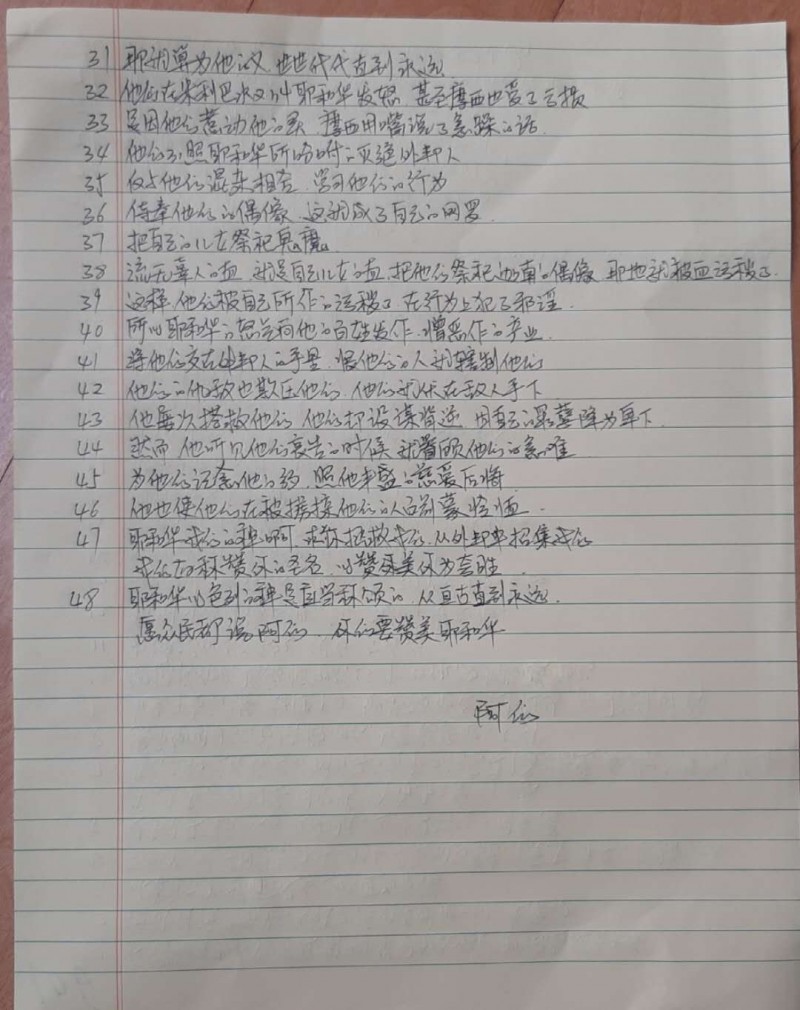 31 那就算为他的义 世世代代直到永远
32 他们在米利巴水又叫耶和华发怒 甚至摩西也受了亏损
33 是因他们惹动他的灵 摩西用嘴说了急躁的话
34 他们不照耶和华所吩咐的灭绝外邦人
35 反与他们混杂相合 学习他们的行为
36 侍奉他们的偶像 这就成了自己的网罗
37 把自己的儿女祭祀鬼魔
38 流无辜人的血 就是自己儿女的血 把他们祭祀迦南的偶像 那地就被血污秽了
39 这样 他们被自己所作的污秽了 在行为上犯了邪淫
40 所以耶和华的怒向他的百姓发作 憎恶作的产业
41 将他们交在外邦人的手里 恨他们的人就辖制他们
42 他们的仇敌也欺压他们 他们就伏在敌人手下
43 他屡次搭救他们 他们却设谋背逆 因自己的罪孽降为卑下
44 然而 他听见他们哀告的时候 就眷顾他们的急难
45 为他们记念他的约 照他丰盛的慈爱后悔
46 他也使他们在被掳掠他们的人面前蒙怜恤
47 耶和华我们的神啊 求你拯救我们 从外邦中招集我们
我们好称赞你的圣名 以赞美你为夸胜
48 耶和华以色列的神是应当称颂的 从亘古直到永远
愿众民都说阿们 你们要赞美耶和华
阿们